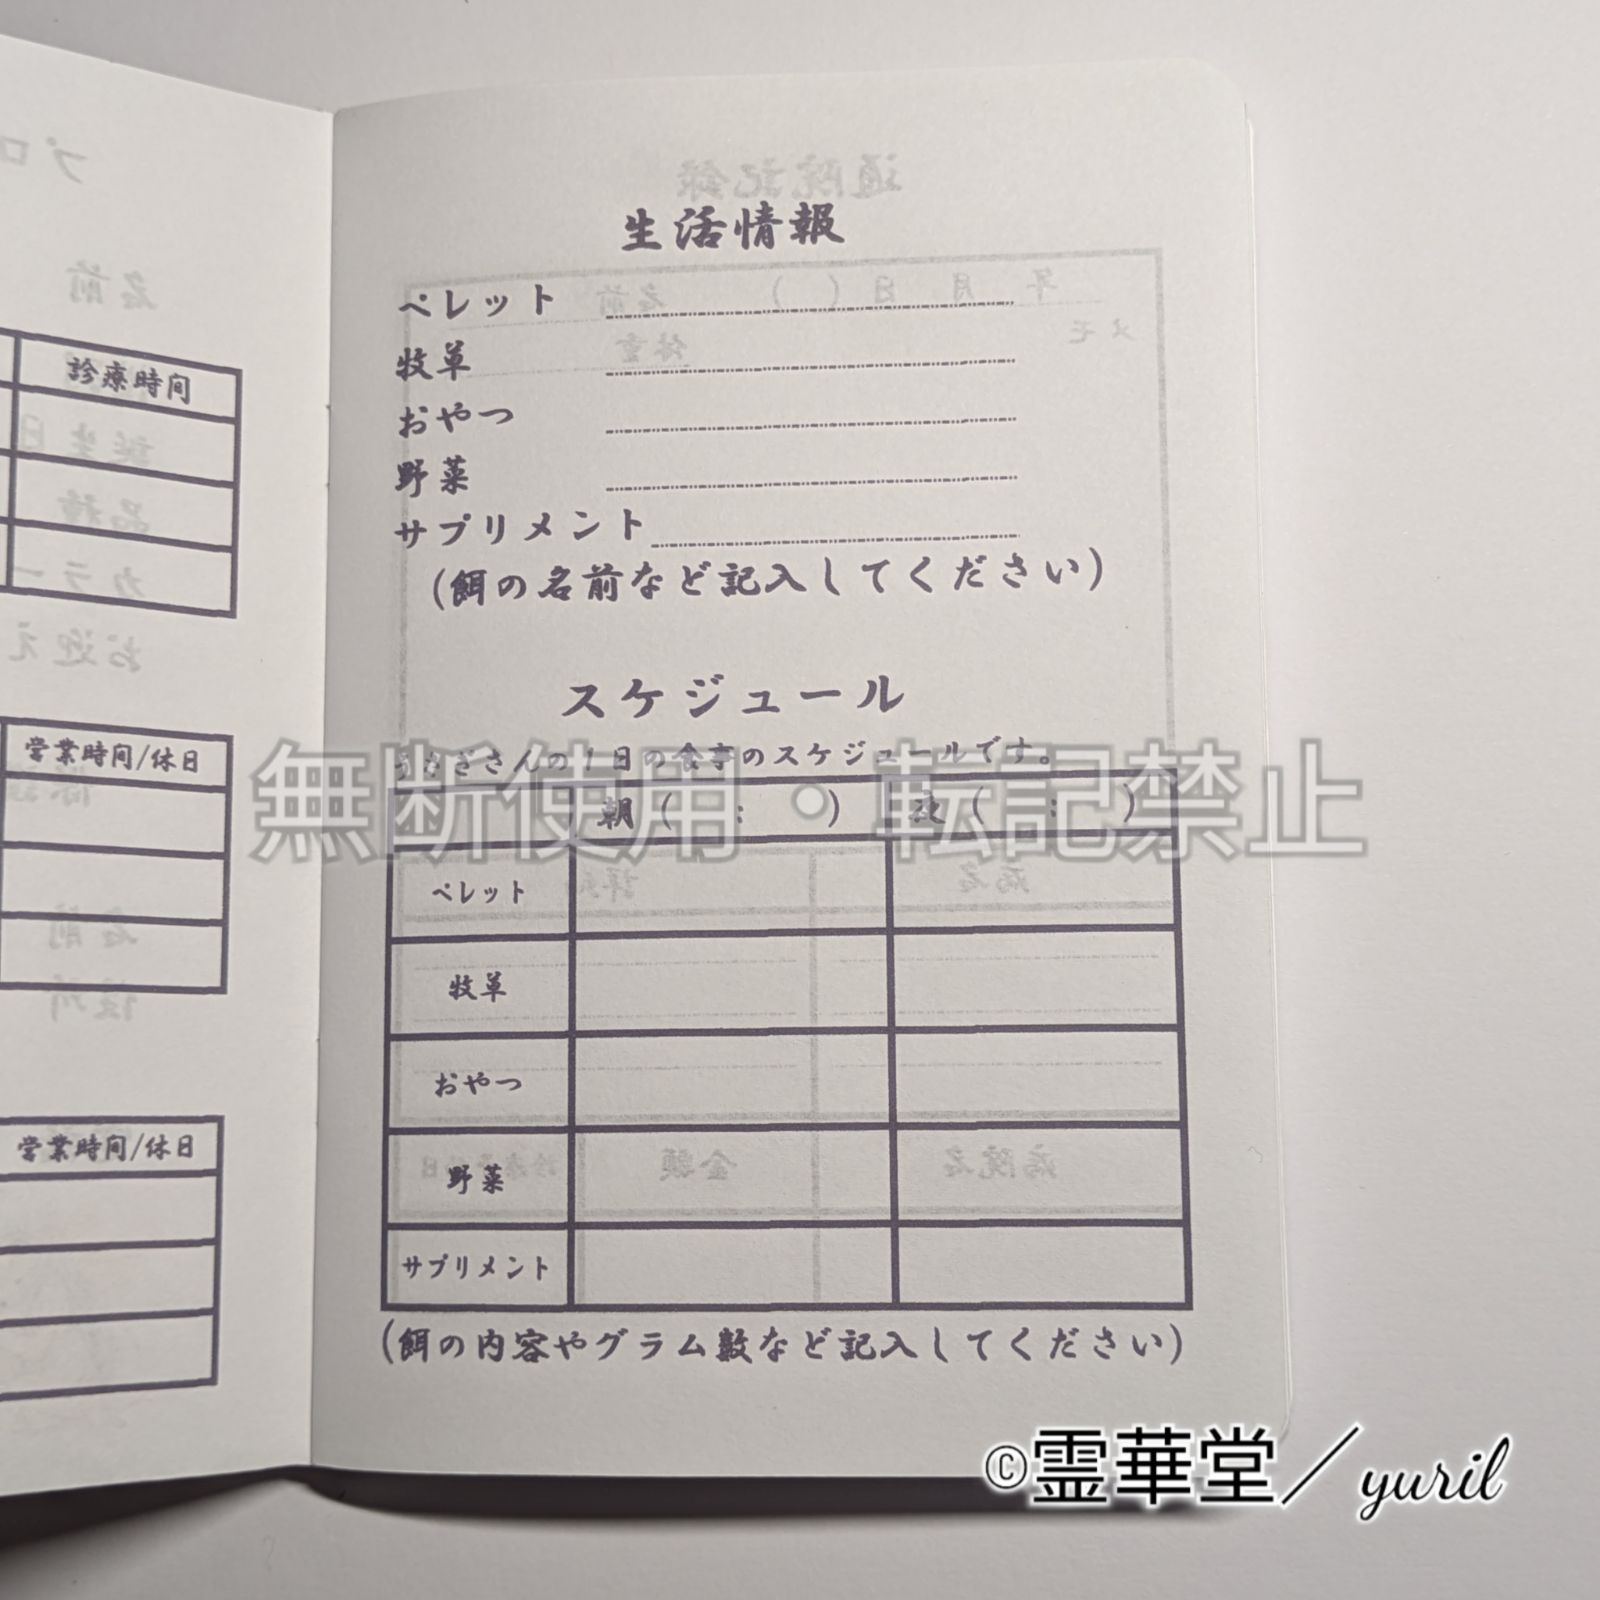 診療時間
営業時間/休日
営業時間/休日
生活情報
ペレット
牧草
おやつ
野菜
サプリメント
(餌の名前など記入してください)
スケジュール
うさぎさんの1日の食事のスケジュールです。
朝( : ) 夜( : )
ペレット
牧草
おやつ
野菜
サプリメント
(餌の内容やグラム数など記入してください)
無断使用・転記禁止
©霊華堂/yuril